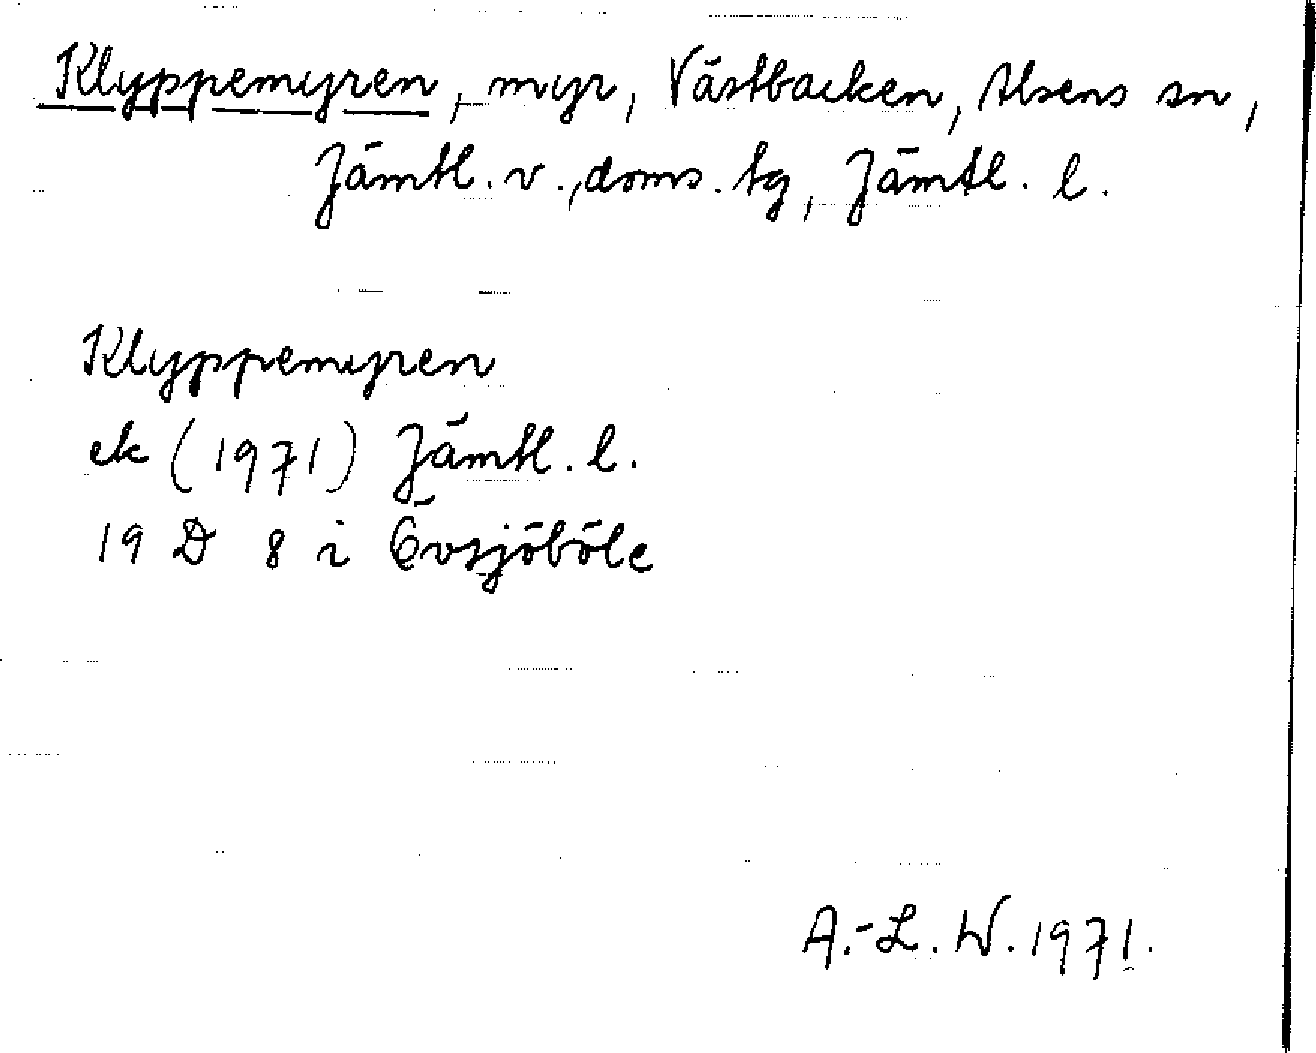 Klyppemyren, myr, Västbacken, Alsens sn,
Jämtl. v., doms. tg, Jämtl. l.
Klyppemyren
ek (1971) Jämtl. l.
19 D 8 i Övsjöböle
A.-L. W. 1971.